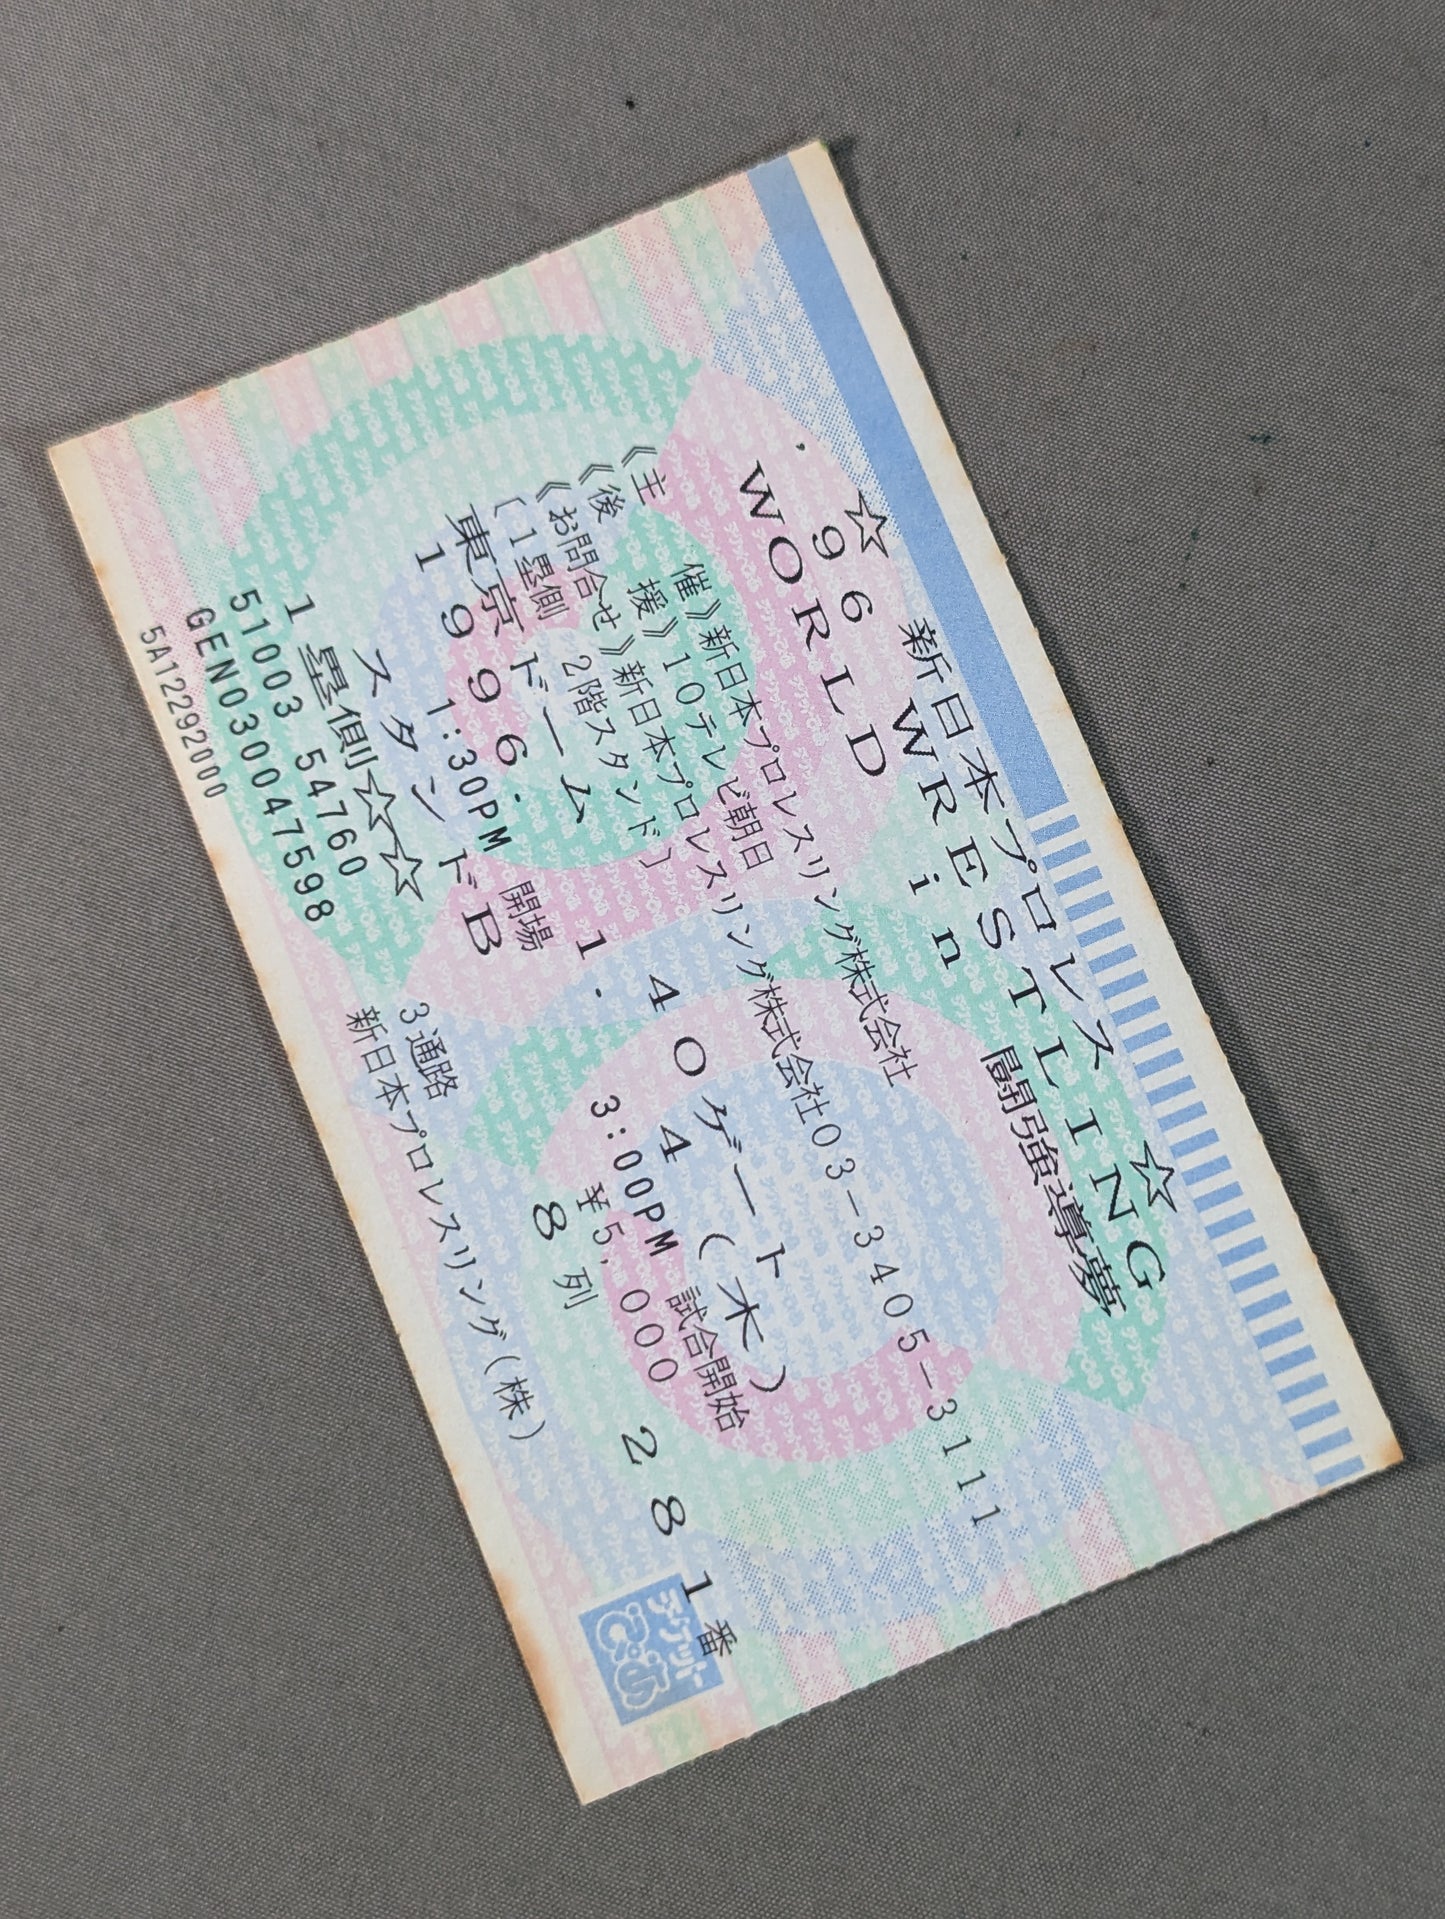 ☆ 新日本プロレス ☆
'96 WRESTLING
WORLD in 闘強導夢
《主 催》新日本プロレスリング株式会社
《後 援》10テレビ朝日
《お問合せ》新日本プロレスリング株式会社03-3405-3111
〔1塁側 2階スタンド〕
東京ドーム 40ゲート
1996. 1. 4 (木)
1:30PM 開場 3:00PM 試合開始
スタンドB ¥5,000
1塁側☆☆ 3通路 8列 281番
51003 54760 新日本プロレスリング(株)
GEN0300047598
5A12292000
チケットぴあ